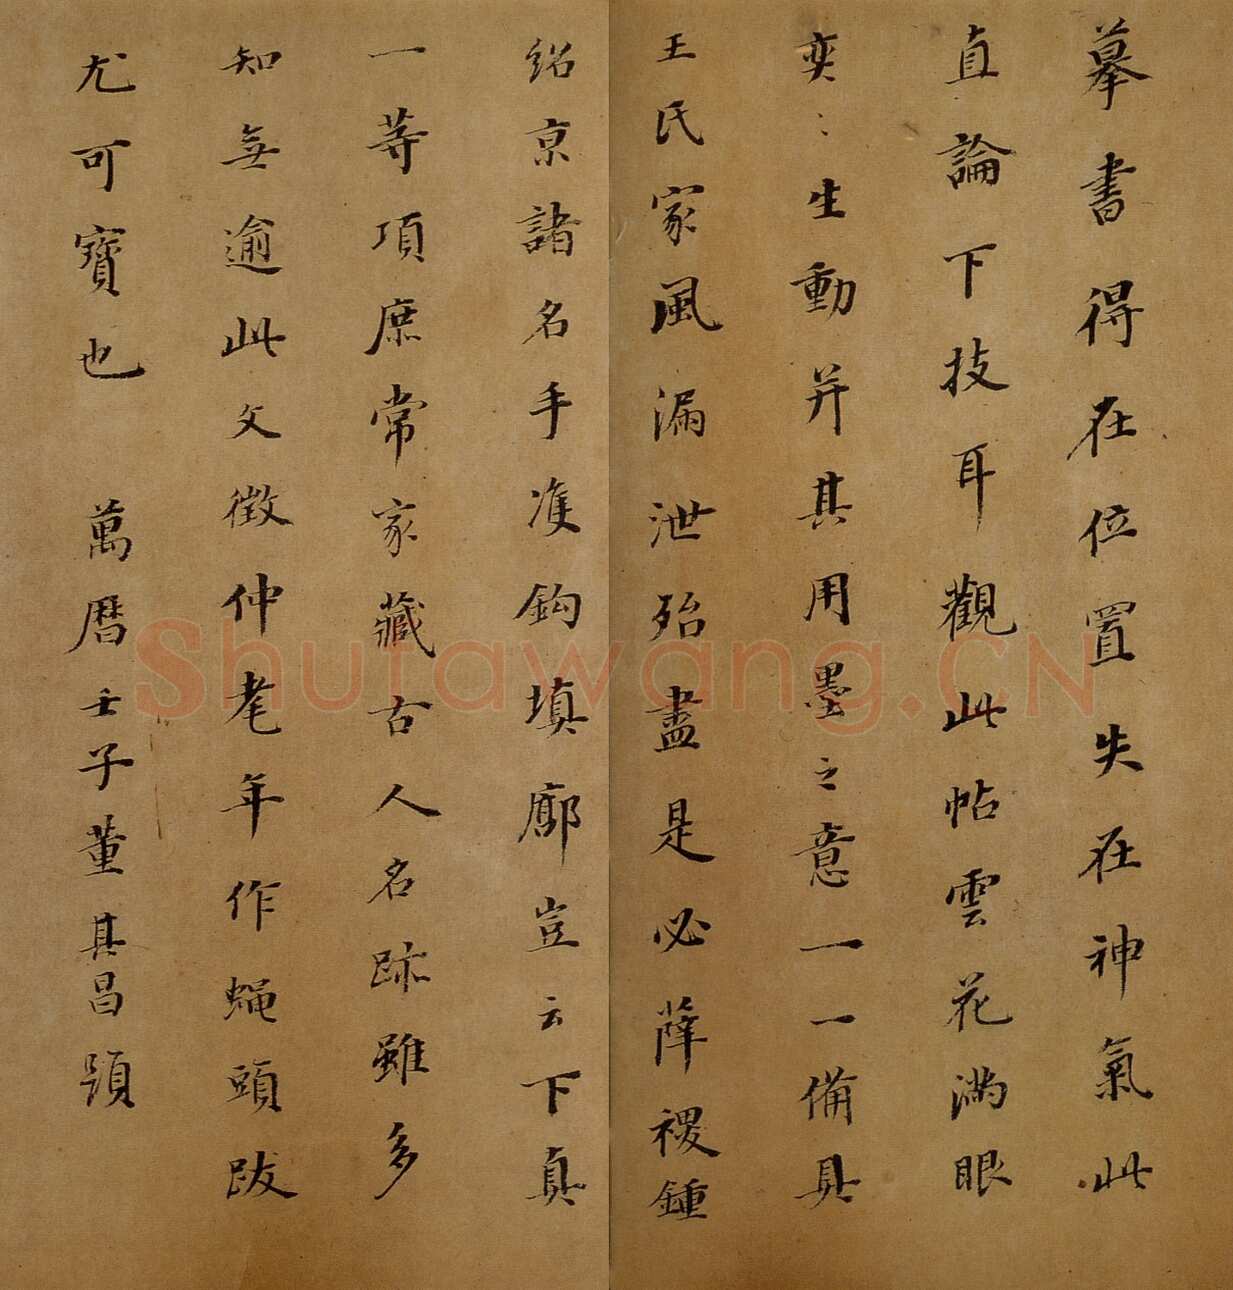 摹書得在位置失在神氣此
直論下技耳觀此帖雲花滿眼
奕〻生動并其用墨之意一一備具
王氏家風漏泄殆盡是必薛稷鍾
紹京諸名手准鈎填廓豈云下真
一等項庶常家藏古人名跡雖多
知無逾此文徵仲耄年作蝇頭跋
尤可寶也 萬曆壬子董其昌題
Shufawang.CN